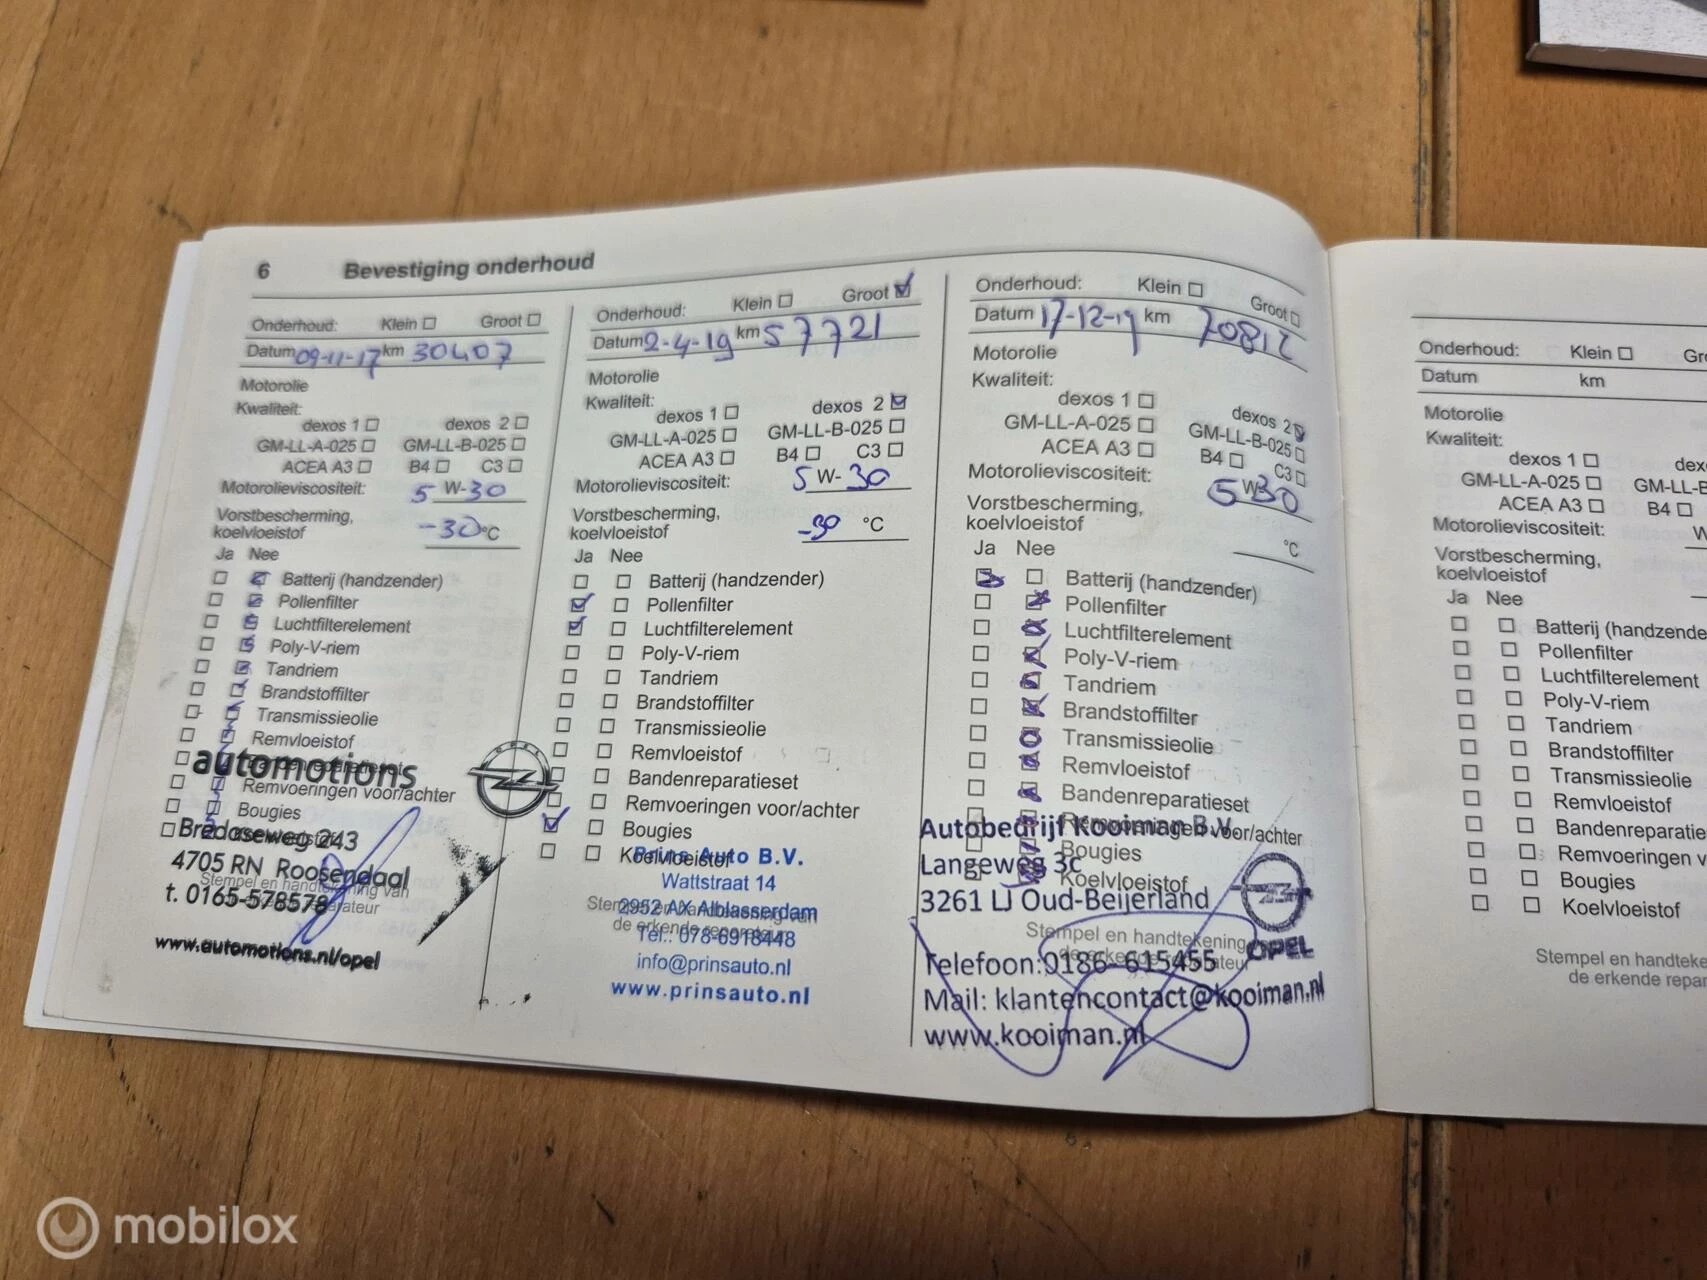 6 Bevestiging onderhoud
Onderhoud: Klein Groot
Datum 09-11-17 km 30407
Motorolie
Kwaliteit:
dexos 1 dexos 2
GM-LL-A-025 GM-LL-B-025
ACEA A3 B4 C3
Motorolieviscositeit: 5 W-30
Vorstbescherming,
koelvloeistof -30 °C
Ja Nee
Batterij (handzender)
Pollenfilter
Luchtfilterelement
Poly-V-riem
Tandriem
Brandstoffilter
Transmissieolie
Remvloeistof
Bandenreparatieset
Remvoeringen voor/achter
Bougies
Koelvloeistof
automotions
OPEL
Bredaseweg 243
4705 RN Roosendaal
Stempel en handtekening van
t. 0165-578578
www.automotions.nl/opel
Onderhoud: Klein Groot
Datum 2-4-19 km 57721
Motorolie
Kwaliteit:
dexos 1 dexos 2
GM-LL-A-025 GM-LL-B-025
ACEA A3 B4 C3
Motorolieviscositeit: 5 W-30
Vorstbescherming,
koelvloeistof -30 °C
Ja Nee
Batterij (handzender)
Pollenfilter
Luchtfilterelement
Poly-V-riem
Tandriem
Brandstoffilter
Transmissieolie
Remvloeistof
Bandenreparatieset
Remvoeringen voor/achter
Bougies
Koelvloeistof
Prins Auto B.V.
Wattstraat 14
2952 AX Alblasserdam
Stempel en handtekening van
de erkende reparateur
Tel.: 078-6918448
info@prinsauto.nl
www.prinsauto.nl
Onderhoud: Klein Groot
Datum 17-12-19 km 70812
Motorolie
Kwaliteit:
dexos 1 dexos 2
GM-LL-A-025 GM-LL-B-025
ACEA A3 B4 C3
Motorolieviscositeit: 5 W 30
Vorstbescherming,
koelvloeistof °C
Ja Nee
Batterij (handzender)
Pollenfilter
Luchtfilterelement
Poly-V-riem
Tandriem
Brandstoffilter
Transmissieolie
Remvloeistof
Bandenreparatieset
Remvoeringen voor/achter
Bougies
Koelvloeistof
Autobedrijf Kooiman B.V.
Langeweg 3c
3261 LJ Oud-Beijerland
OPEL
Stempel en handtekening
de erkende reparateur
Telefoon: 0186-615455
Mail: klantencontact@kooiman.nl
www.kooiman.nl
Onderhoud: Klein Gr
Datum km
Motorolie
Kwaliteit:
dexos 1 dex
GM-LL-A-025 GM-LL-B
ACEA A3 B4
Motorolieviscositeit: W
Vorstbescherming,
koelvloeistof
Ja Nee
Batterij (handzende
Pollenfilter
Luchtfilterelement
Poly-V-riem
Tandriem
Brandstoffilter
Transmissieolie
Remvloeistof
Bandenreparatie
Remvoeringen v
Bougies
Koelvloeistof
Stempel en handteke
de erkende repar
mobilox